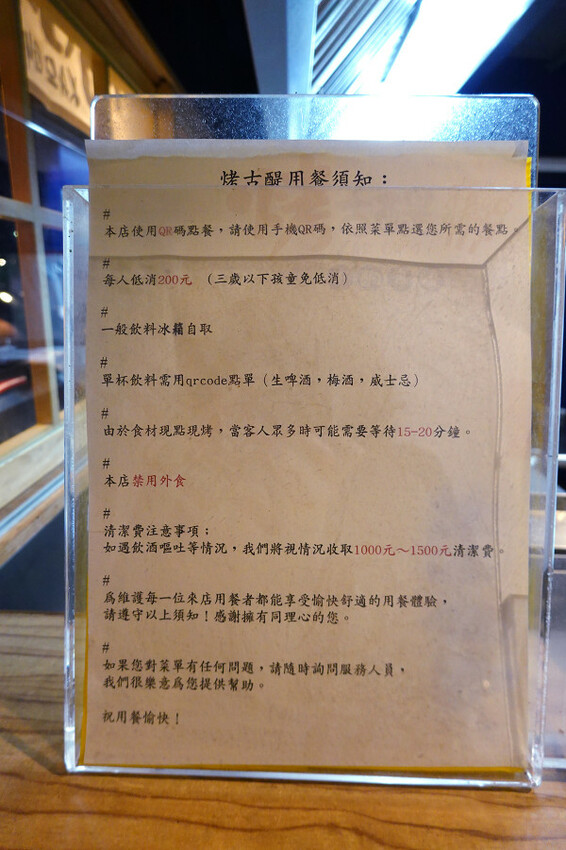 烤古醍用餐須知：
#
本店使用QR碼點餐，請使用手機QR碼，依照菜單點選您所需的餐點。
#
每人低消200元 （三歲以下孩童免低消）
#
一般飲料冰箱自取
#
單杯飲料需用qrcode點單（生啤酒，梅酒，威士忌）
#
由於食材現點現烤，當客人眾多時可能需要等待15-20分鐘。
#
本店禁用外食
#
清潔費注意事項；
如遇飲酒嘔吐等情況，我們將視情況收取1000元～1500元清潔費。
#
為維護每一位來店用餐者都能享受愉快舒適的用餐體驗，
請遵守以上須知！感謝擁有同理心的您。
#
如果您對菜單有任何問題，請隨時詢問服務人員，
我們很樂意為您提供幫助。
祝用餐愉快！